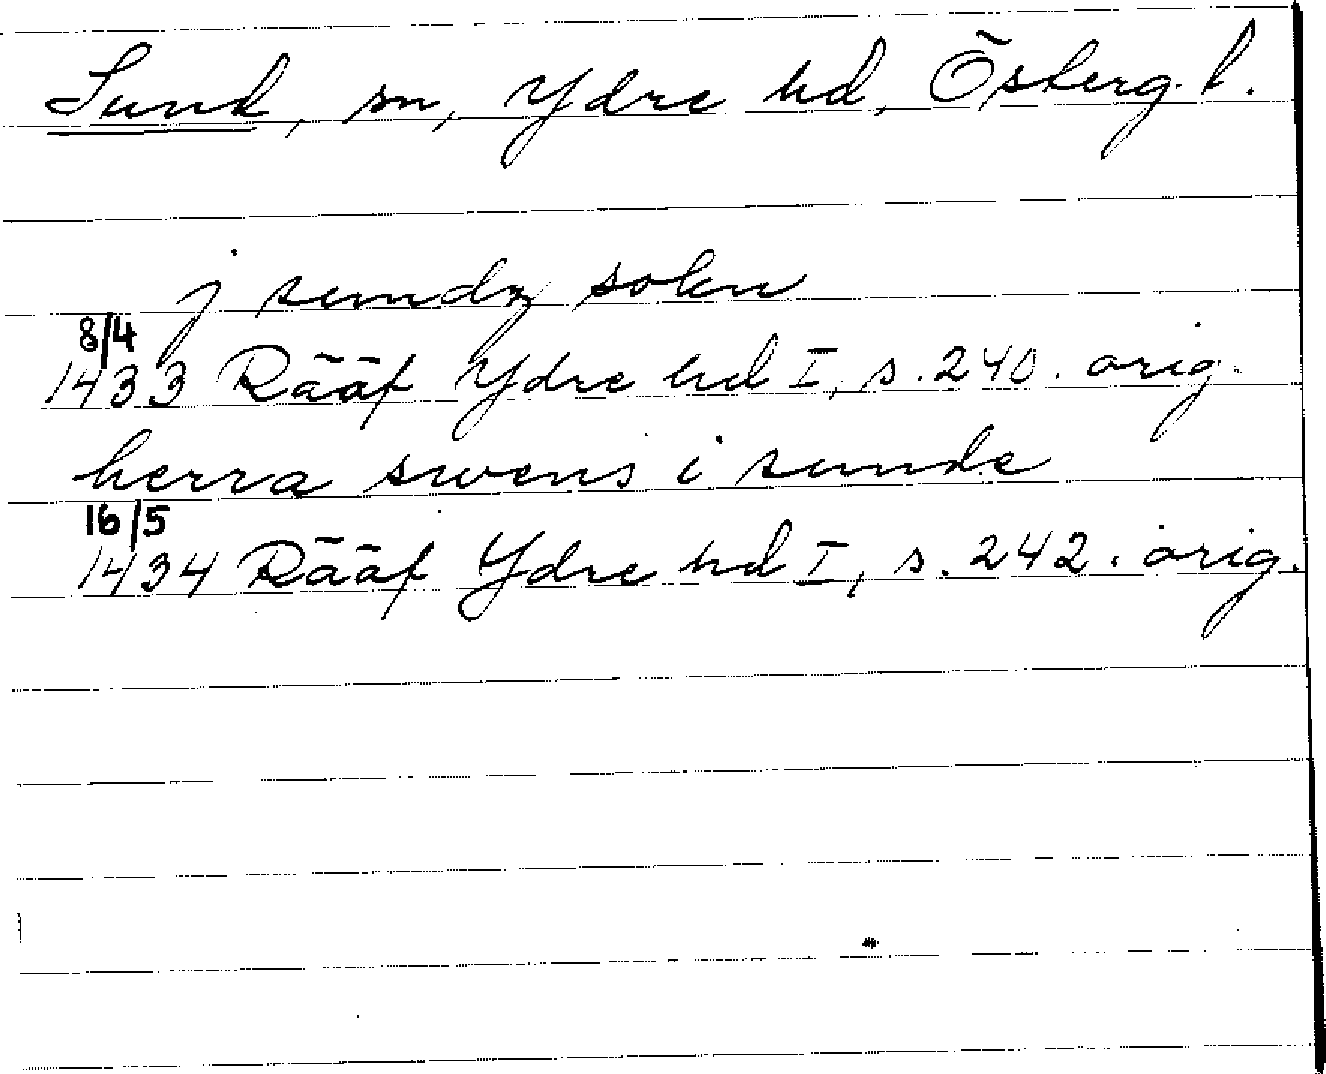 Sund, sn, Ydre hd, Österg. l.
j sundz sokn
8/4
1433 Rääf Ydre hd I, s. 240. orig.
herra swens i sunde
16/5
1434 Rääf Ydre hd I, s. 242. orig.